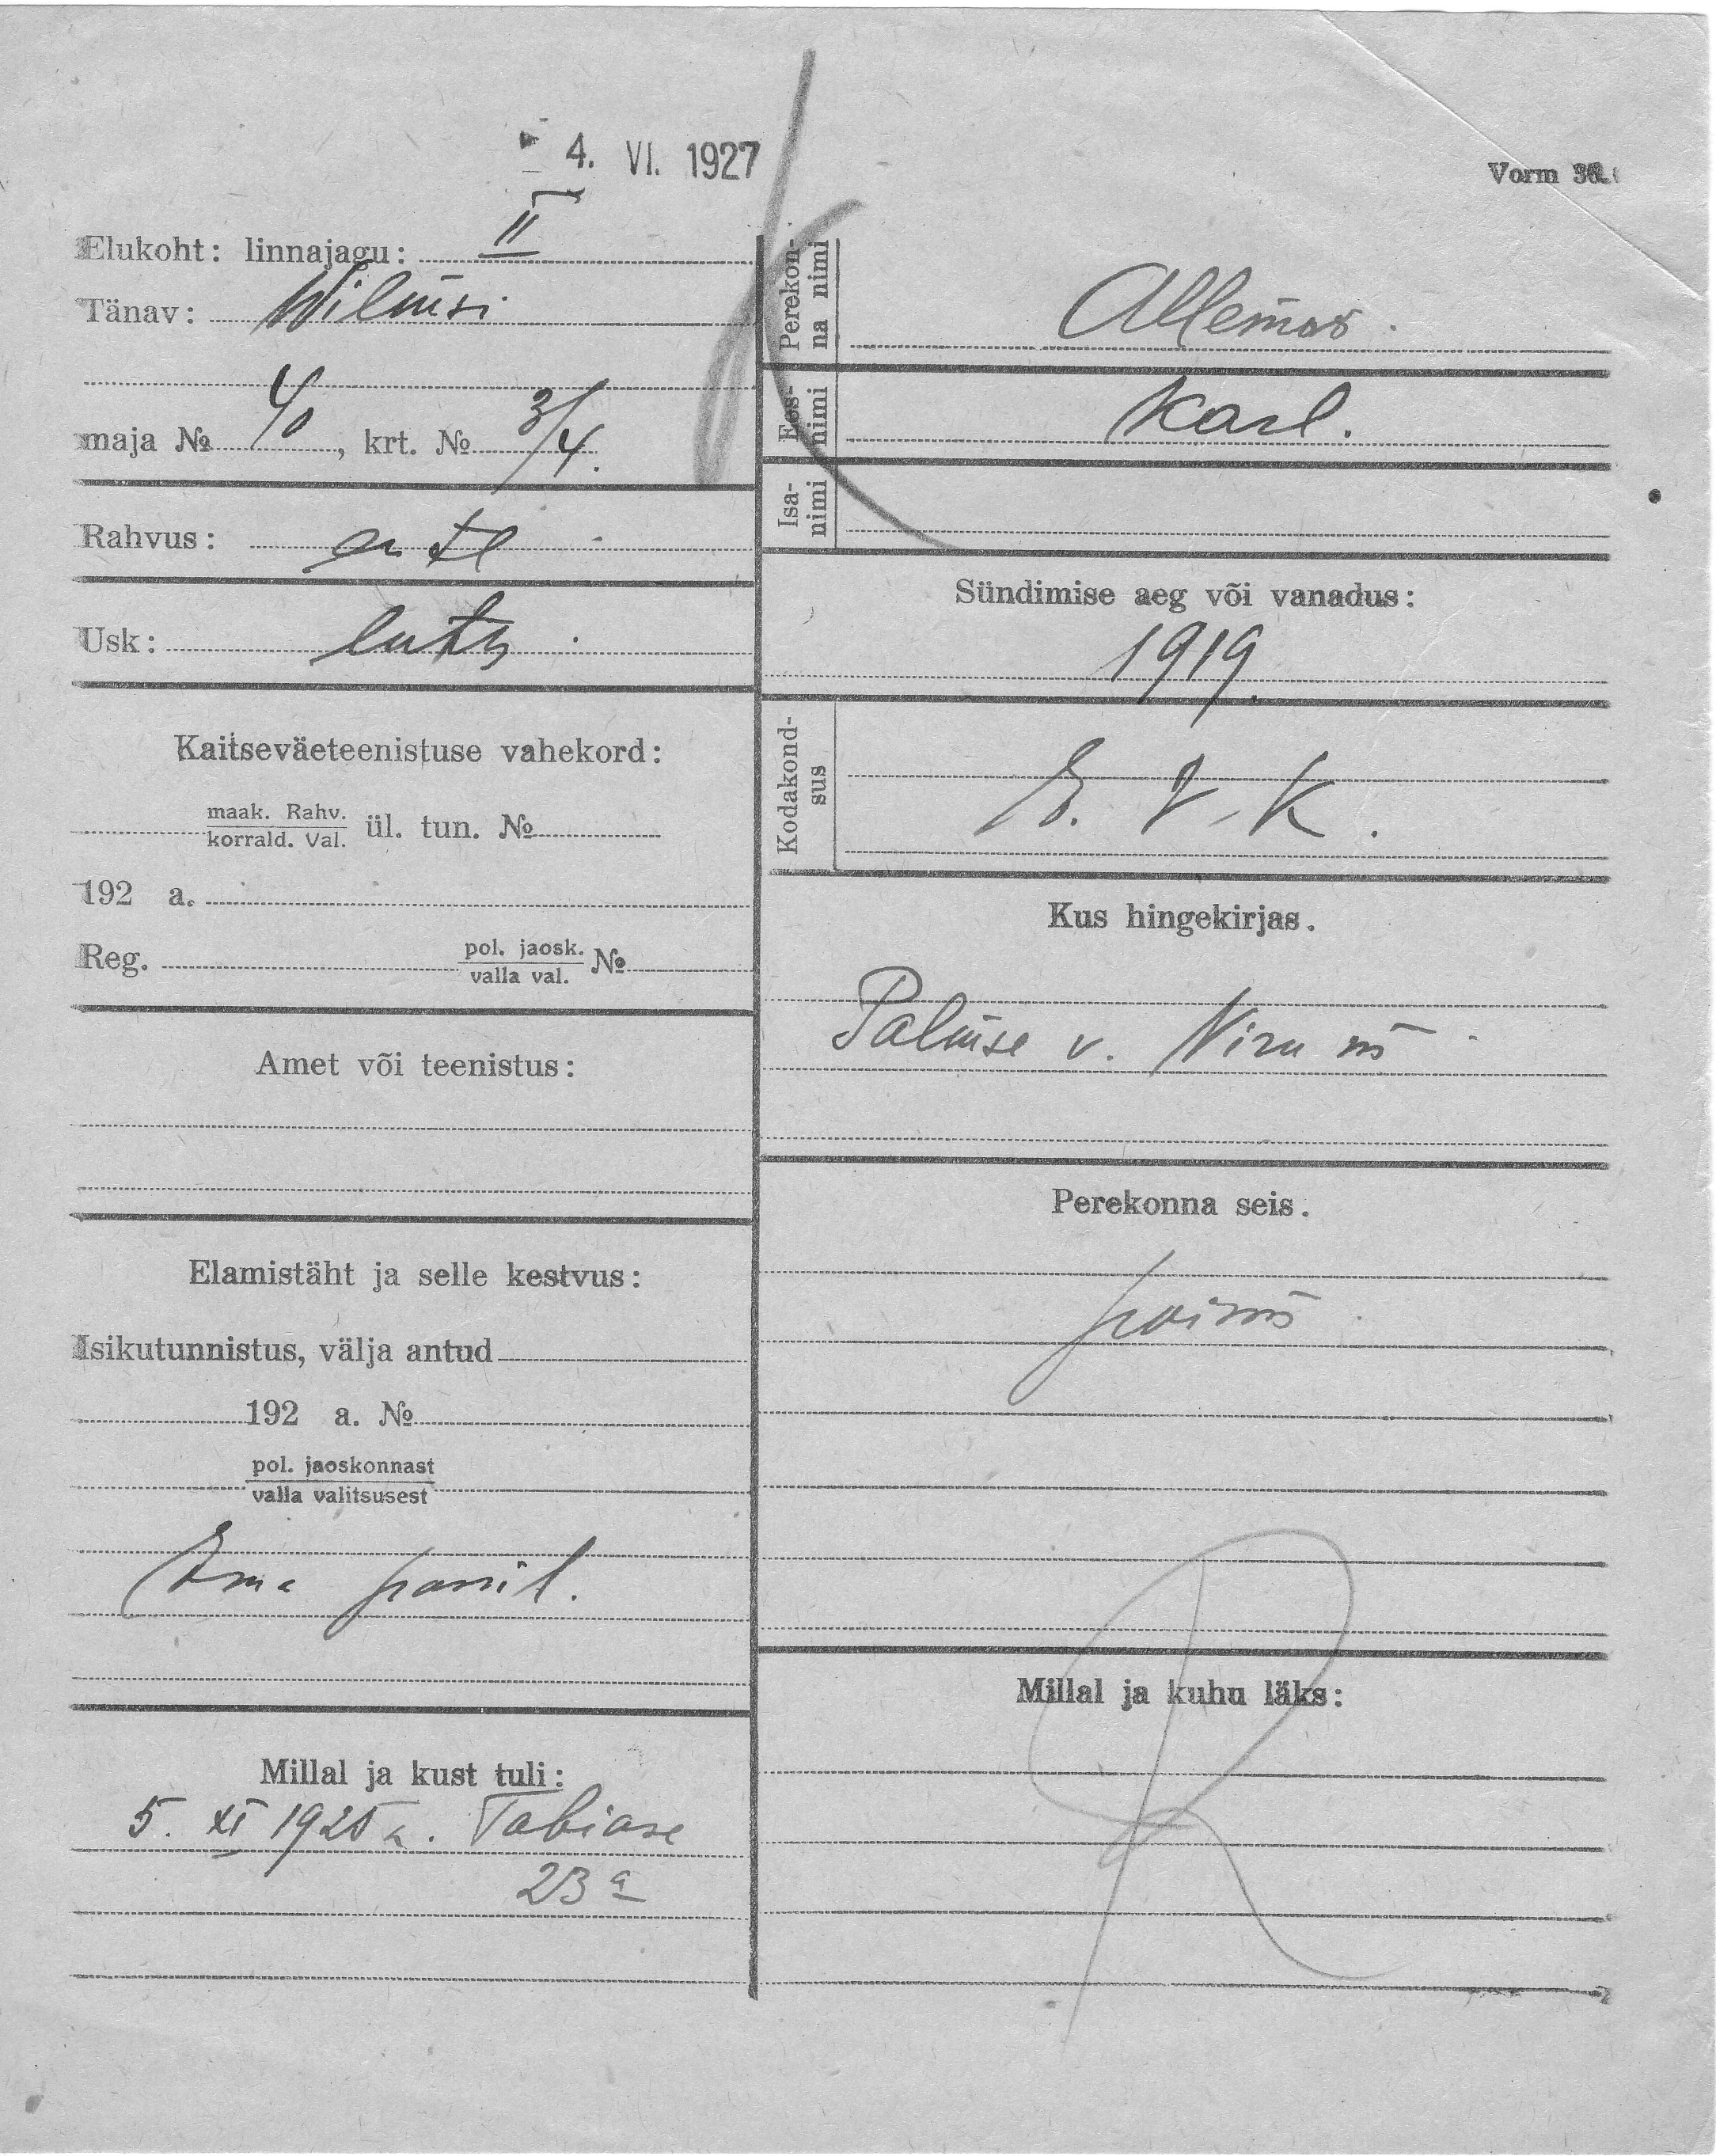 4. VI. 1927
Vorm 36.
Elukoht: linnajagu: II
Tänav: Wilmsi
maja № 40, krt. № 3/4.
Rahvus:
Usk: luth
Kaitseväeteenistuse vahekord:
maak. Rahv.
korrald. Val. ül. tun. №
192 a.
Reg. pol. jaosk. №
valla val.
Amet või teenistus:
Elamistäht ja selle kestvus:
Isikutunnistus, välja antud
192 a. №
pol. jaoskonnast
valla valitsusest
Ema
Millal ja kust tuli:
5. XI 1925 a. Tobiase
23 a
Perekon-
na nimi
Ees-
nimi Karl.
Isa-
nimi
Sündimise aeg või vanadus:
1919.
Kodakond-
sus E. V. K.
Kus hingekirjas.
Palmse v. Viru m
Perekonna seis.
poiss
Millal ja kuhu läks: